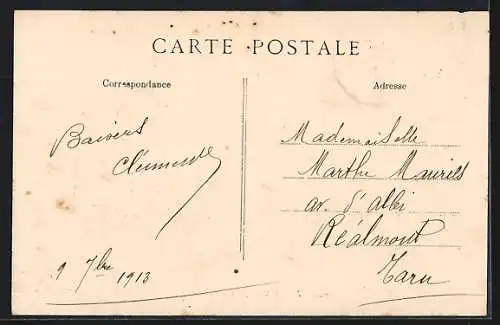 CARTE POSTALE
Correspondance
Adresse
Baisers
Clémence
9 7bre 1913
Mademoiselle
Marthe
av. d'albi
Réalmont
Tarn